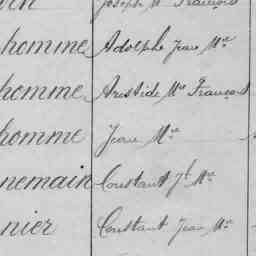 Joseph Mie François
homme Adolphe Jean Mie
homme Aristide Mie François
homme Jean Mie
nemain Constant Jh Mie
nier Constant Jean Mie